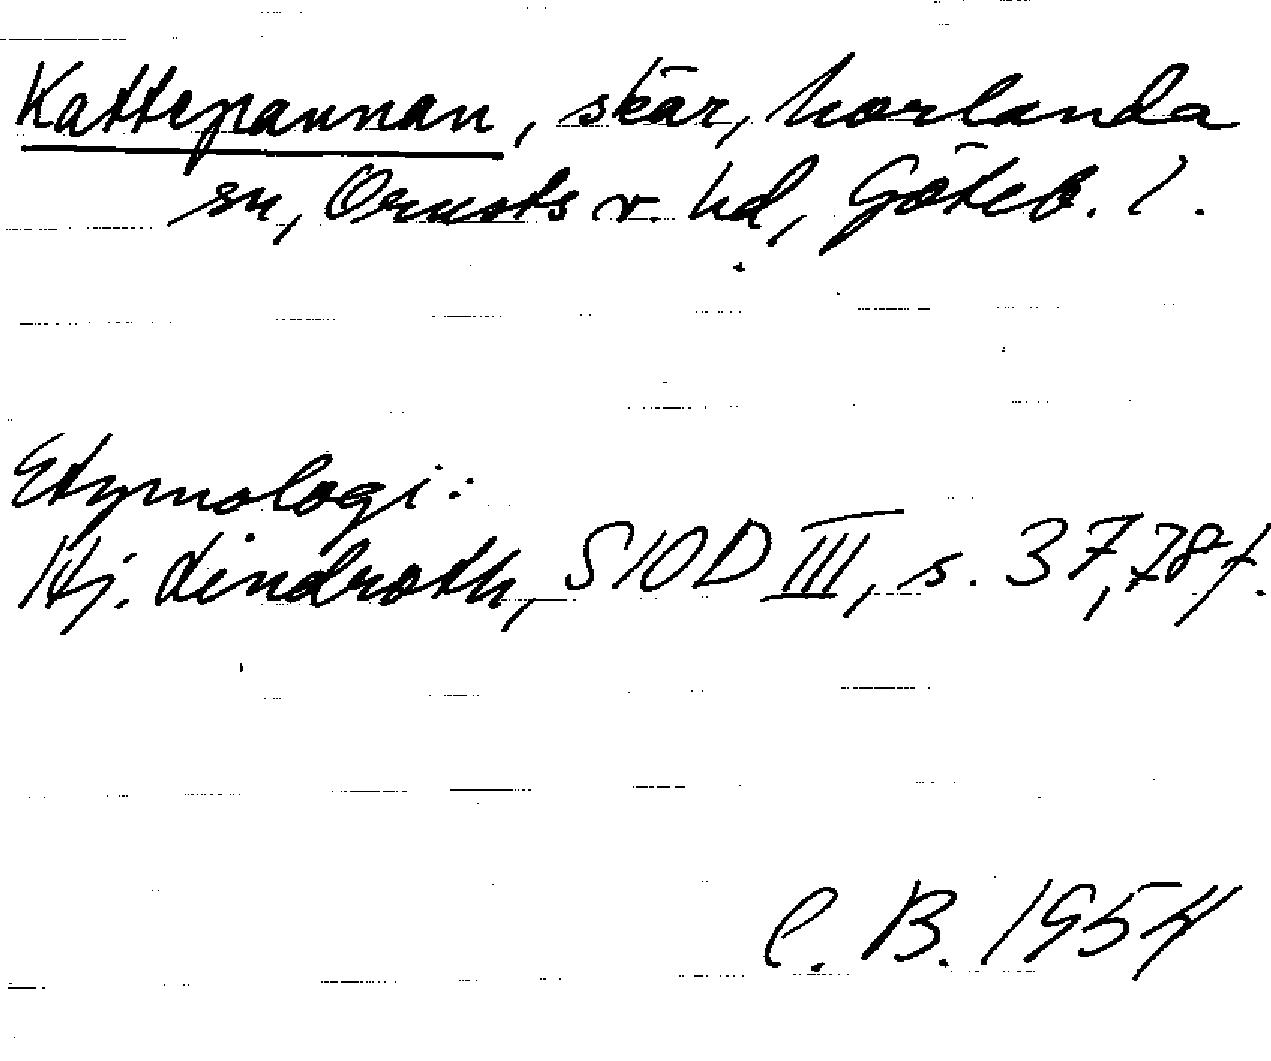 Kattepannan, skär, Morlanda
sn, Orusts v. hd, Göteb. l.
Etymologi:
Hj. Lindroth, SIOD III, s. 37, 78 f.
C. B. 1954